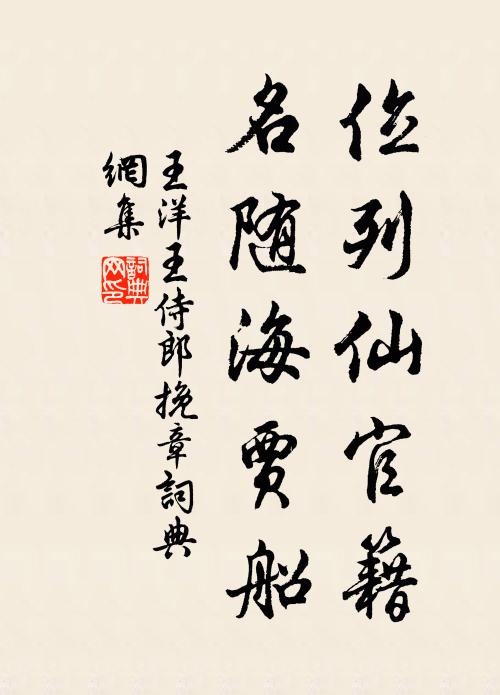 位列仙官籍
名随海贾船
王洋王侍郎挽章詞典
網集
詞典网印